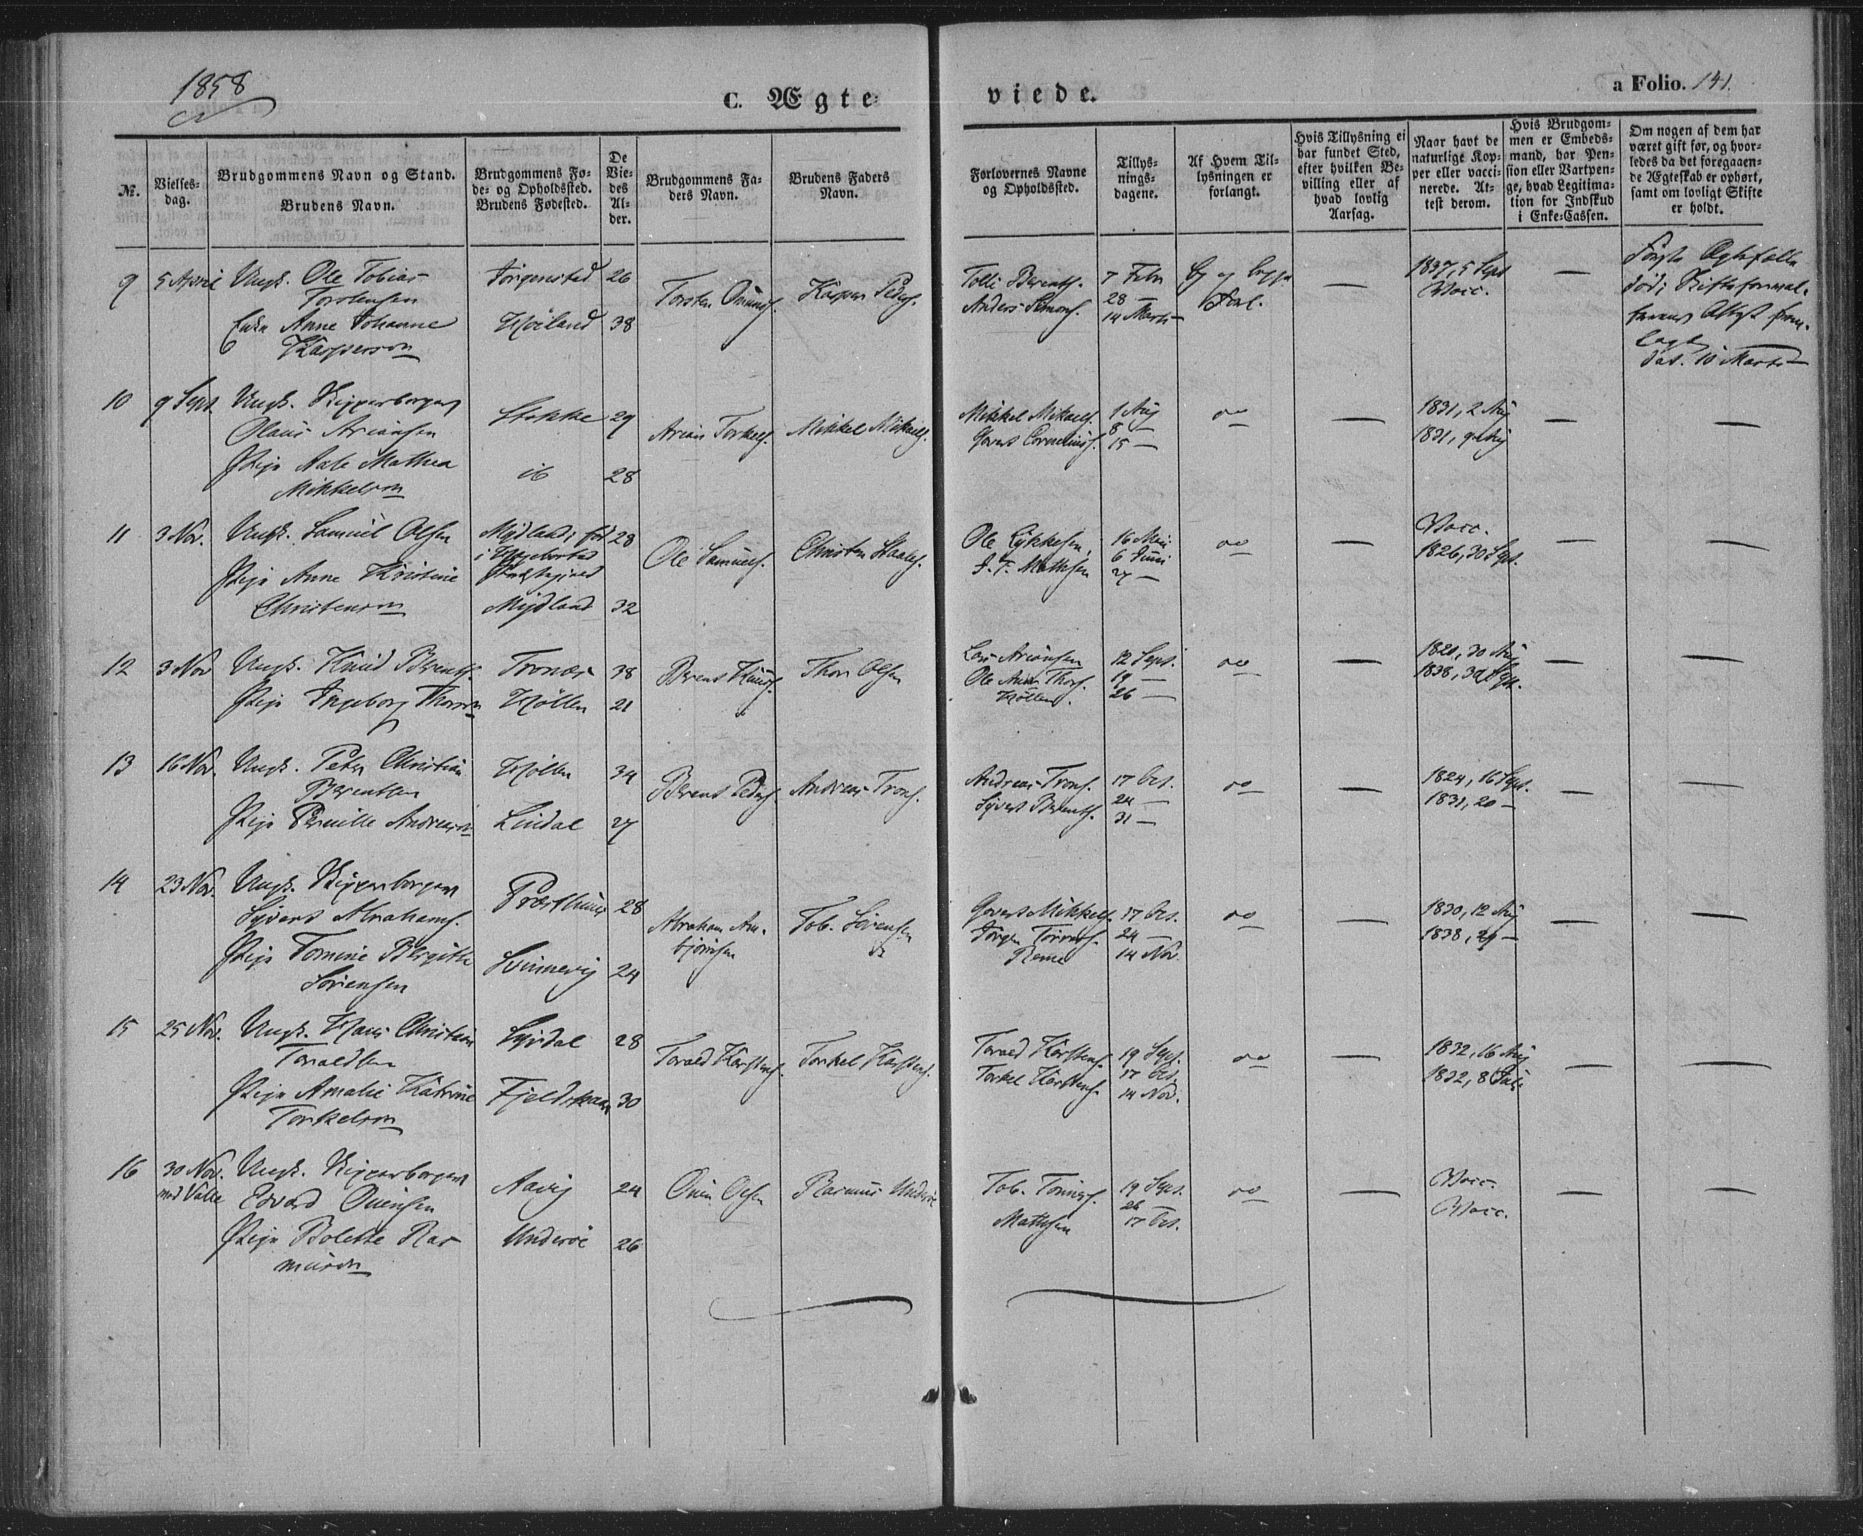 1858
C. Ægte-
viede.
a Folio. 141.
№.
Vielses-
dag.
Brudgommens Navn og Stand.
Brudens Navn.
Brudgommens Fø-
de- og Opholdssted.
Brudens Fødested.
De
Vie-
des
Al-
der.
Brudgommens Fa-
ders Navn.
Brudens Faders
Navn.
Forlovernes Navne
og Opholdssted.
Tillys-
nings-
dagene.
Af Hvem Til-
lysningen er
forlangt.
Hvis Tillysning ei
har fundet Sted,
efter hvilken Be-
villing eller af
hvad lovlig
Aarsag.
Naar havt de
naturlige Kop-
per eller vacci-
nerede. At-
test derom.
Hvis Brudgom-
men er Embeds-
mand, har Pen-
sion eller Vartpen-
ge, hvad Legitima-
tion for Indskud
i Enke-Cassen.
Om nogen af dem har
været gift før, og hvor-
ledes da det foregaaen-
de Ægteskab er ophørt,
samt om lovligt Skifte
er holdt.
9 5 April Ungk. Ole Tobias
Torstensen
Enke Anne Johanne
Kasperson
Jørgensted 26
Høiland 38
Torsten Omunds. Kasper Peders.
Tolli Berents.
Anders Simons.
7 Febr
28 —
14 Marts —
1837, 5 Sept
Vacc.
dat. 10 Marts —
10 9 Sept Ungk. Skipperborger
Olaus Ariansen
Pige Aale Mathea
Mikkelson
Stokke 29
ib 28
Arian Torkels. Mikkel Mikaels.
Mikkel Mikaels.
Govert Cornelius.
1 Aug
8 —
15 —
1831, 2 Aug
1831, 9 Aug
11 3 Nov. Ungk. Samuel Olsen
Pige Anne Kristine
Christenson
Mydland, fød
i Hægebostad
Præstegjeld 28
Mydland 32
Ole Samuels. Christen
Ole Lykkesen,
J. T. Mathesen
16 Mai
6 Juni
27 —
Vacc.
1826, 30 Sept.
12 3 Nov Ungk. Knud Berents.
Pige Ingeborg Thorson
Tronæs 38
Høllen 21
Berent Knuds. Thor Olsen
Lars Ariansen
Ole Thors.
Høllen.
12 Sept.
19 —
26 —
1820, 30 Aug
1838, Sept.
13 16 Nov. Ungk. Peter Christian
Berentsen
Pige Pernille Andreason
Høllen 34
Lindal 27
Berent Peders. Andreas Trons.
Andreas Trons.
Syvert Berents.
17 Oct.
24 —
31 —
1824, 16 Sept.
1831, 20 —
14 23 Nov. Ungk. Skipperborger
Syvert Abrahams.
Pige Tomine Bergitte
Sørensen
Præsthuus 28
Svinnevig 24
Abraham An-
bjørnsen
Tob. Sørensen
Govert Mikkels.
Jørgen Tørres.
Reme
17 Oct.
24 —
14 Nov.
1830, 12 Aug
1838, 29 —
15 25 Nov. Ungk. Hans Christian
Taraldsen
Pige Amalie Katrine
Torkelson
Syrdal 28
Fjeldskaar 30
Tarald Karstens. Torkel Karstens.
Tarald Karstens.
Torkel Karstens.
19 Sept.
17 Oct.
14 Nov.
1832, 16 Aug
1832, 8 Juli
16 30 Nov.
med Valse
Ungk. Skipperborger
Edvard Ouensen
Pige Bolette Ras-
muson
Aavig 24
Underøe 26
Ouen Olsen Rasmus Underøe
Tob. Tønnes.
Mathesen
19 Sept.
26 —
17 Oct.
Vacc.
Vacc.